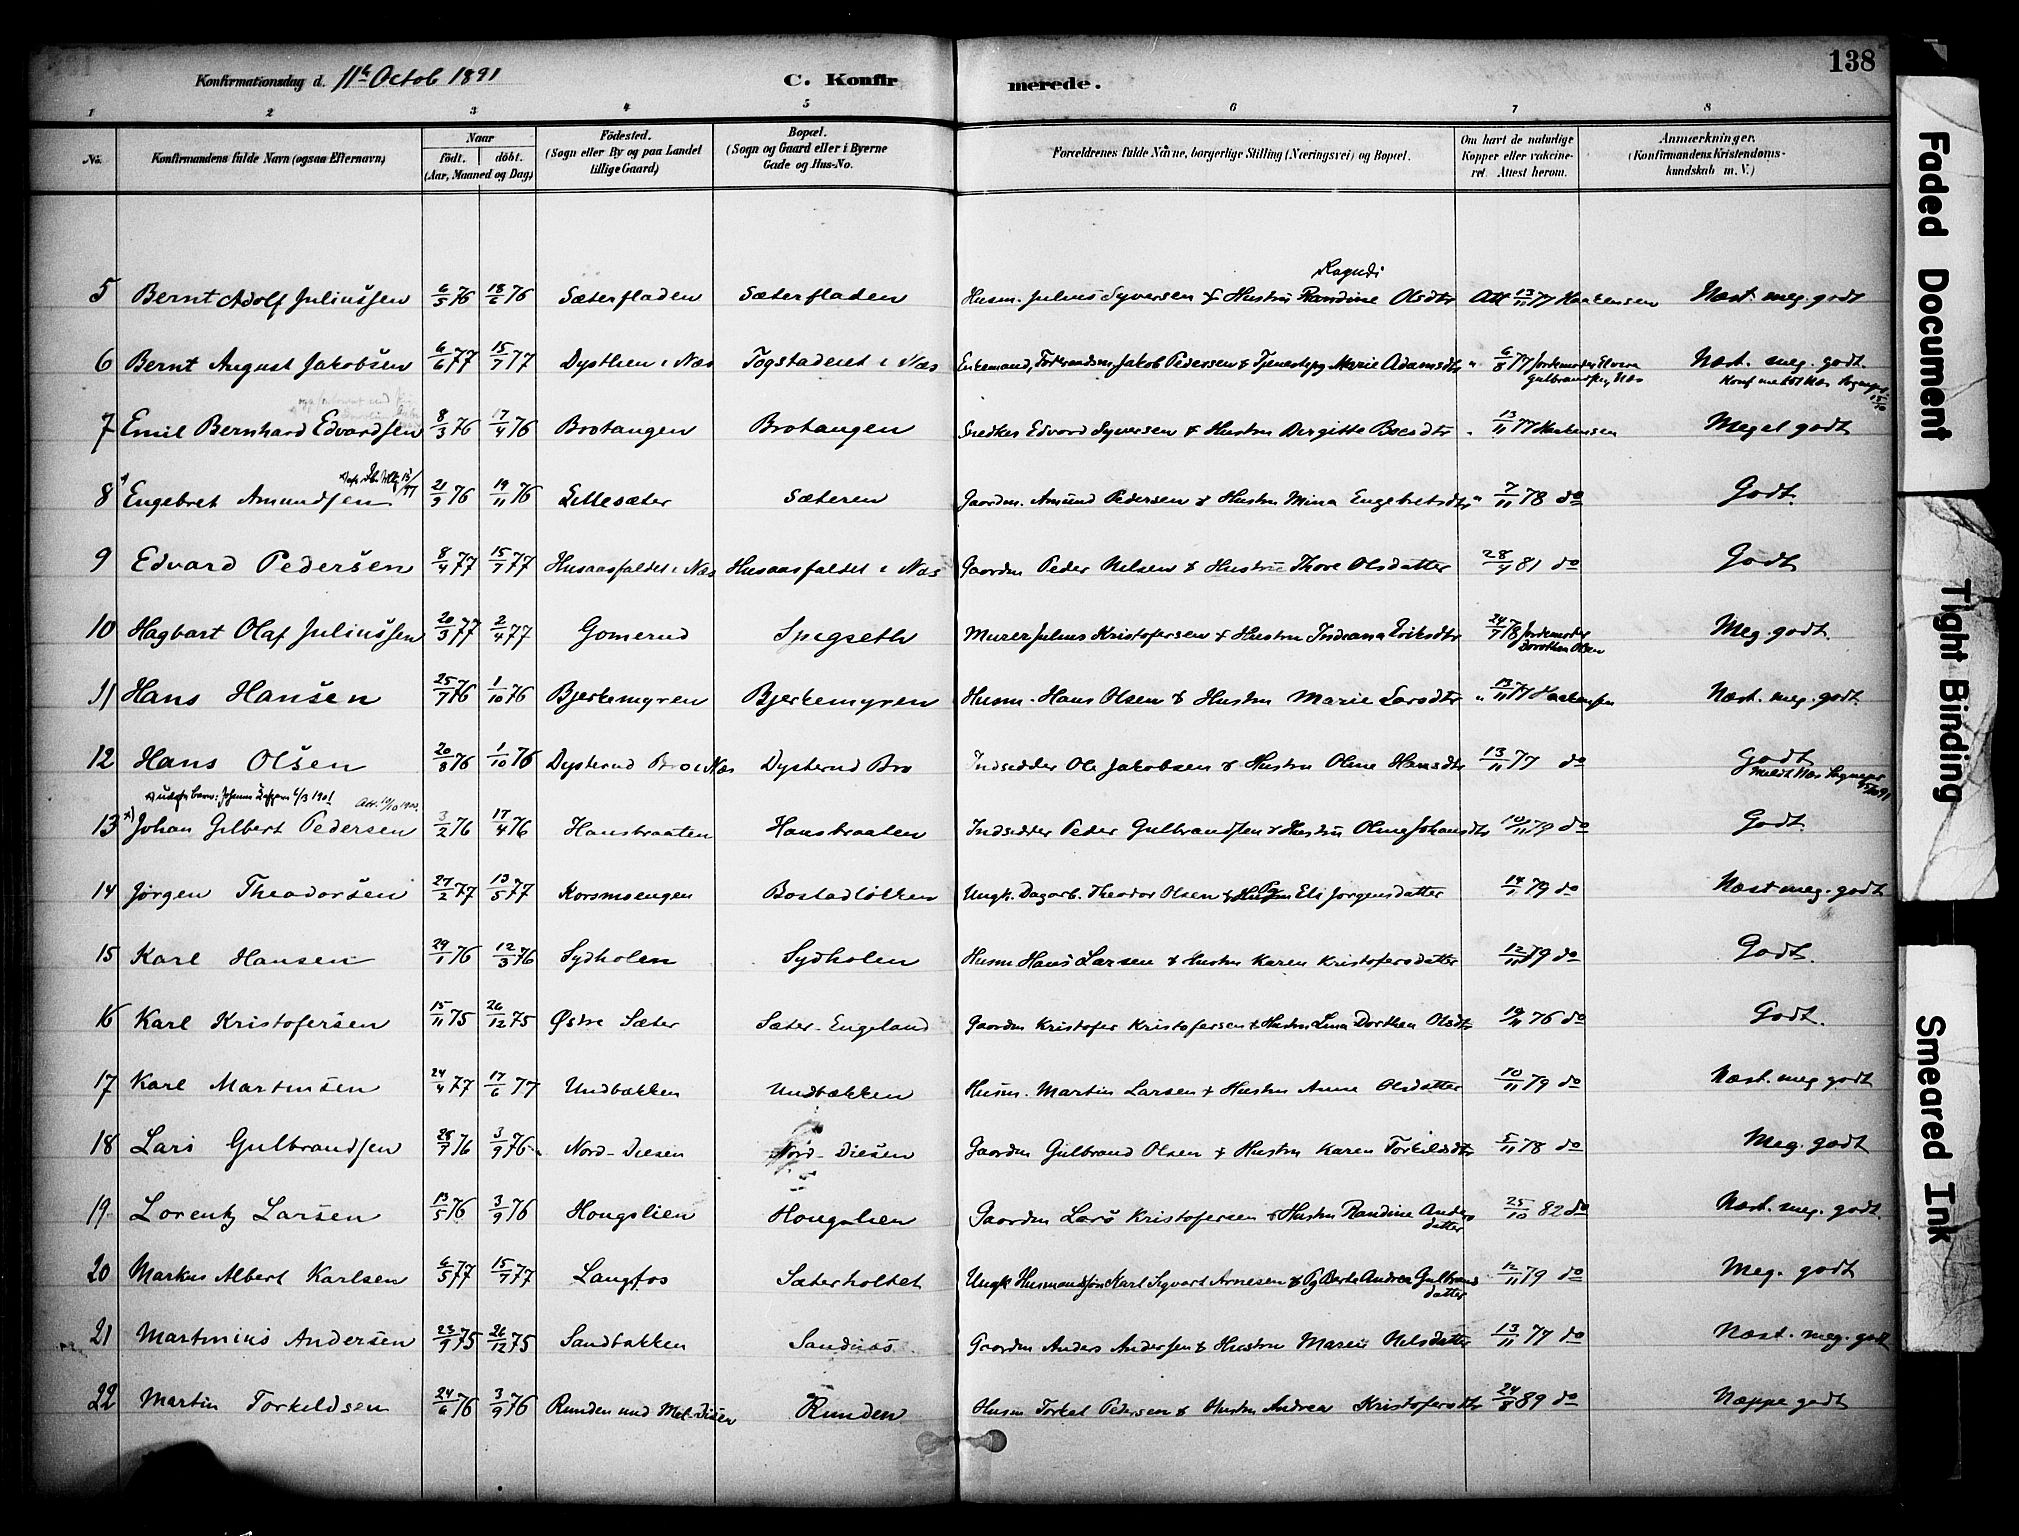 138
Konfirmationsdag d. 11te Octob 1891 C. Konfirmerede.
1 2 3 4 5 6 7 8
No. Konfirmandens fulde Navn (ogsaa Efternavn) Naar født. døbt. (Aar, Maaned og Dag) Födested. (Sogn eller By og paa Landet tillige Gaard) Bopæl. (Sogn og Gaard eller i Byerne Gade og Hus-No. Forældrenes fulde Navne, borgerlige Stilling (Næringsvei) og Bopæl. Om havt de naturlige Kopper eller vakcineret. Attest herom. Anmærkninger. (Konfirmandens Kristendomskundskab m. V.)
Ragndi
5 Bernt Adolf Juliussen 6/5 76 18/6 76 Sæterfladen Sæterfladen Husm. Julius Syversen & Hustru Randine Olsdtr Att 13/11 77 Haakensen Næst. meg. godt
6 Bernt August Jakobsen 6/6 77 15/7 77 Dysthen i Næs Togstaderet i Næs Enkemand, Jakob Pedersen & Marie Adamsdtr " 6/8 77 Jordemoder Gulbrandsen, Næs Næst. meg. godt.
7 Emil Bernhard Edvardsen 8/3 76 17/4 76 Brotangen Brotangen Snedker Edvard Syversen & Hustru Birgitte Boesdtr " 13/11 77 Haakensen Meget godt
8 Engebret Amundsen 21/9 76 19/11 76 Lillesæter Sæteren Gaardm. Amund Pedersen & Hustru Mina Engebretsdtr " 7/11 78 do Godt.
9 Edvard Pedersen 8/4 77 15/7 77 Husaasfaldet i Næs Husaasfaldet i Næs Gaardm Peder Nilsen & Hustru Thore Olsdatter 28/4 81 do Godt
10 Hagbart Olaf Juliussen 20/3 77 2/4 77 Gomerud Spigseth Murer Julius Kristofersen & Hustru Indiana Eriksdtr 24/7 78 Jordemoder Dorothea Olsen Meg. godt.
11 Hans Hansen 25/7 76 1/10 76 Bjerkemyren Bjerkemyren Husm. Hans Olsen & Hustru Marie Larsdtr " 13/11 77 Haakensen Næst. meg. godt.
12 Hans Olsen 20/8 76 1/10 76 Dysterud Bro i Næs Dysterud Bro Indsidder Ole Jakobsen & Hustru Oline Hansdtr 13/11 77 do Godt
Att. 19/10 1900.
13 Johan Gilbert Pedersen 3/2 76 17/4 76 Hansbraaten Hansbraaten Indsidder Peder Gulbrandsen & Hustru Oline Johansdtr 10/11 79 do Godt.
14 Jørgen Theodorsen 27/2 77 13/5 77 Korsmoengen Bostadløkken Ungk. Dagarb. Theodor Olsen & Pg Eli Jørgensdatter 14/1 79 do Næst meg. godt
15 Karl Hansen 29/1 76 12/3 76 Sydholen Sydholen Husm Hans Larsen & Hustru Karen Kristofersdatter 12/11 79 do Godt.
16 Karl Kristofersen 15/11 75 26/12 75 Østre Sæter Sæter-Engeland Gaardm Kristofer Kristofersen & Hustru Lina Dorthea Olsdtr 19/11 76 do Godt.
17 Karl Martinsen 24/4 77 17/6 77 Undbakken Undbakken Husm. Martin Larsen & Hustru Anne Olsdatter 10/11 79 do Næst. meg godt
18 Lars Gulbrandsen 28/7 76 3/9 76 Nord-Diesen Nord-Diesen Gaardm Gulbrand Olsen & Hustru Karen Torkildsdtr 5/11 78 do Meg. godt
19 Lorentz Larsen 13/5 76 3/9 76 Hougslien Hougslien Gaardm Lars Kristofersen & Hustru Randine Andersdatter 25/10 82 do Næst. meg. godt.
20 Markus Albert Karlsen 6/5 77 15/7 77 Langfos Sæterholtet Ungk Husmandssøn Karl Sigvart Arnesen & Pg Berte Andrea Gulbrandsdatter 12/11 79 do Meg. godt
21 Martinius Andersen 23/9 75 26/12 75 Sandbakken Sandnæs Gaardm Anders Andersen & Hustru Maren Nilsdatter 13/11 77 do Næst. meg. godt
22 Martin Torkildsen 24/6 76 3/9 76 Runden und Mel. Disen Runden Husm Torkel Pedersen & Hustru Andrea Kristofersdtr 24/8 89 do Næppe godt
Faded Document
Tight Binding
Smeared Ink